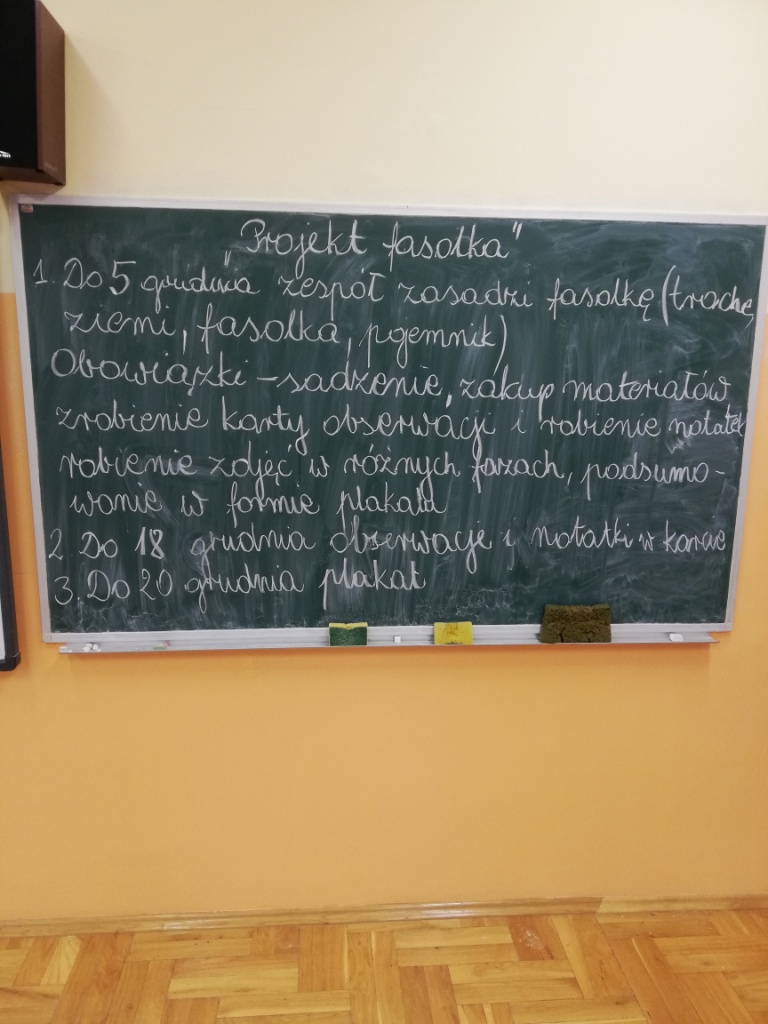 „Projekt fasolka"
1. Do 5 grudnia zespół zasadzi fasolkę (trochę
ziemi, fasolka, pojemnik)
Obowiązki – sadzenie, zakup materiałów
zrobienie karty obserwacji i robienie notatek
robienie zdjęć w różnych fazach, podsumo-
wanie w formie plakatu
2. Do 18 grudnia obserwacje i notatki w karcie
3. Do 20 grudnia plakat